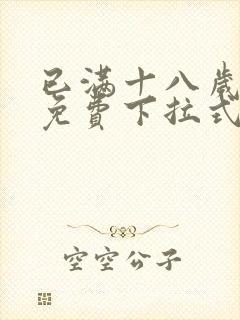 已满十八岁
免費下拉式
空空公子